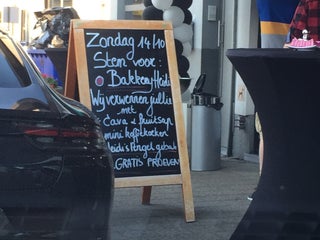 Zondag 14/10
Stem voor:
Bakkerij Heidi
Wij verwennen jullie
met
Cava & fruitsap
mini koffiekoeken
Heidi's Pengel gebak
GRATIS PROEVEN